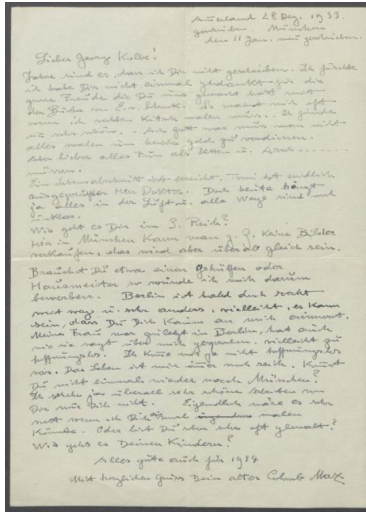 Auerland 28 Dez. 1933.
geschrieben München
den 11 Jan. neu geschrieben.
Lieber Georg Kolbe!
Jahre sind es, dass ich Dir nicht geschrieben. Ich fürchte
ich habe Dir nicht einmal gedankt für die
grosse Freude die Du uns gemacht hast mit
wenn ich Kitsch malen muss. Ich finde
sie sehr schön. was muss man nicht
alles malen um Geld zu verdienen.
Aber lieber alles tun als
müssen.
Ein Lebensabschnitt ist erreicht. Toni ist endlich
ausgeprüfter Herr Doktor. Doch heute hängt
ja alles in der Luft u. alle Wege sind noch
unklar.
Wie geht es Dir im 3. Reich?
Hier in München kann man z. Z. keine Bilder
verkaufen, das wird aber überall gleich sein.
Brauchst Du etwa einen Gehülfen oder
Hausmeister so würde ich mich darum
bewerben. Berlin ist halt doch recht
weit weg u. sehr anders, vielleicht, es kann
sein, dass Du Dich kaum an mich erinnerst.
Meine Frau war zuletzt in Berlin, hat auch
wie sie sagt über mich gesprochen, vielleicht zu
hoffnungslos. Ich bin ja nicht hoffnungslos
Das Leben ist mir immer noch reich. Kommst
Du nicht einmal wieder nach München?
Ich sehe ja überall sehr schöne Arbeiten von
Dir nur Dich nicht. Eigentlich wäre es sehr
nett wenn ich Dich einmal malen
könnte. Oder bist Du schon sehr oft gemalt?
Wie geht es Deinen Kindern?
Alles gute auch für 1934
Mit herzlichem Gruss Dein alter Max